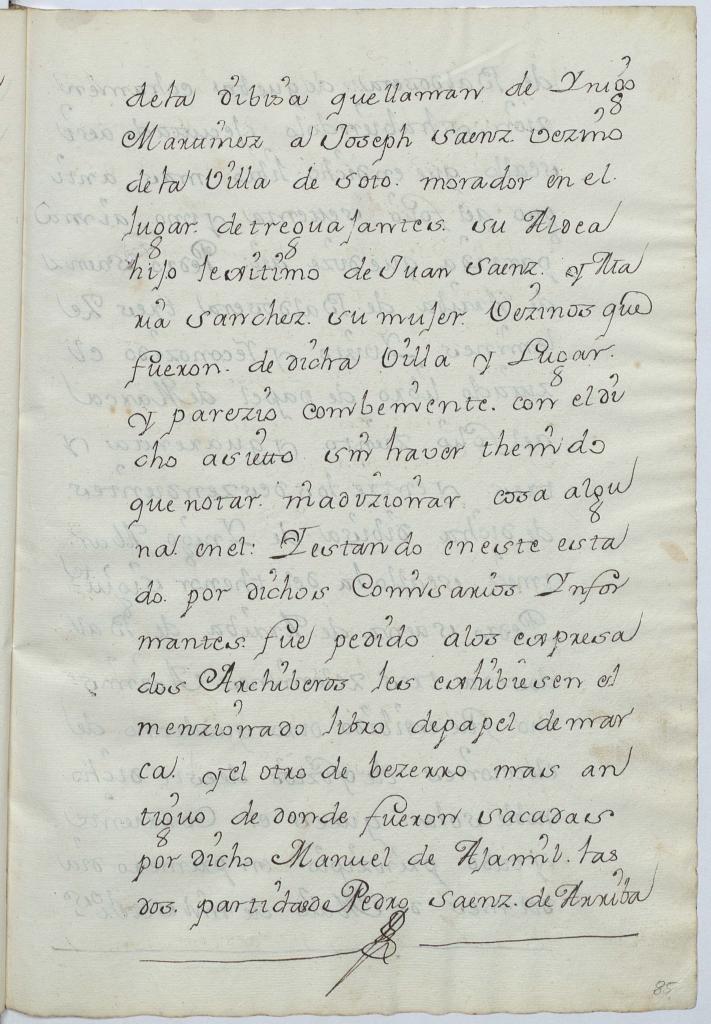 dela dibisa que llaman de Ynigo
Martinez a Joseph Saenz. Vezino
dela Villa de Soto. morador en el
lugar. de treguajantes. su Aldea
hijo lexitimo de Juan Saenz. y Ma
ria Sanchez. su mujer. Vezinos que
fueron. de dicha Villa y Lugar.
y parezio combeniente. con el di
cho asietto sin haver thenido
que notar. ni adizionar cosa algu
na en el: Y estando en este esta
do. por dichos Comisarios Infor
mantes. fue pedido a los expresa
dos Archiberos les exhibiesen el
menzionado libro de papel de mar
ca. y el otro de bezerro mas an
tiguo de donde fueron sacadas
por dicho Manuel de Ajamil. las
dos. partidas de Pedro Saenz. de Arriba
85